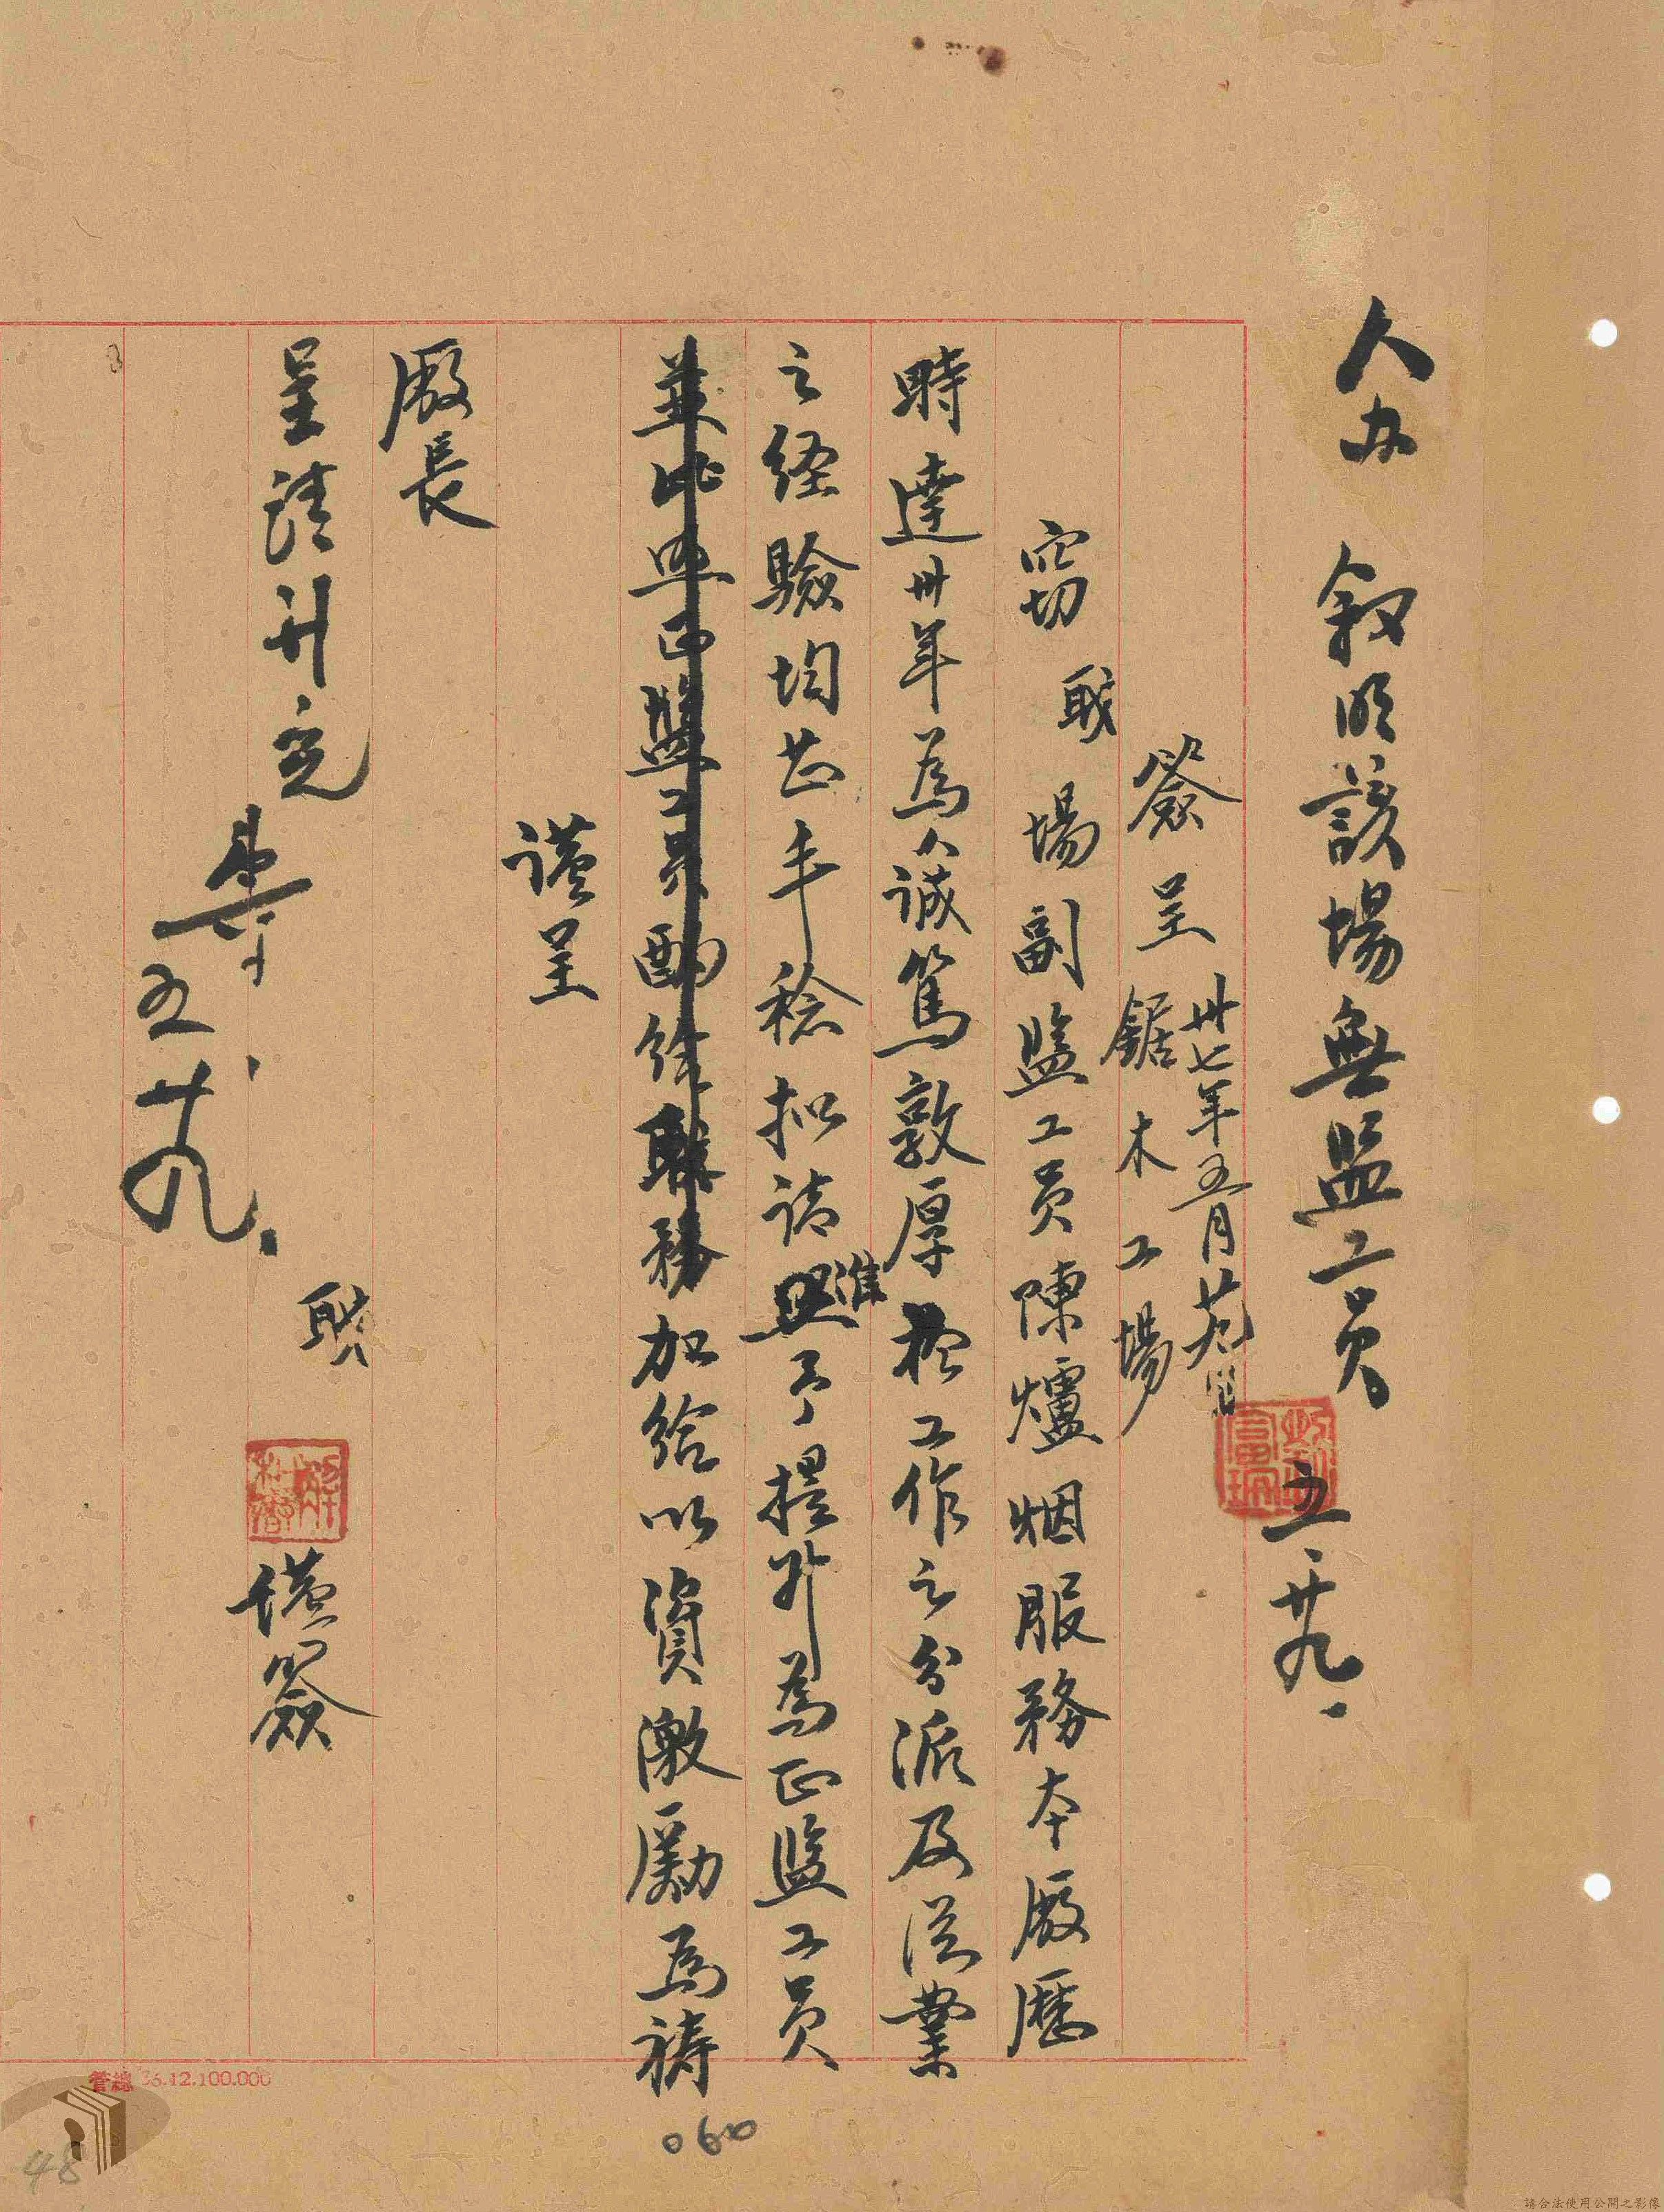 人办 叙明該場無監工員 五、廿九、
卅七年五月廿九日
簽呈 鋸木工場
窃職場副監工員陳爐烟服務本廠歷
時達卅年為人誠篤敦厚於工作之分派及從業
之経驗均甚丰稔扣請准予提升為正監工員
並比照正監工員酌給職務加給以資激勵為禱
謹呈
廠長
職 謹簽
呈請升充
五廿九、
管總 36.12.100.000
060
48
請合法使用公開之影像